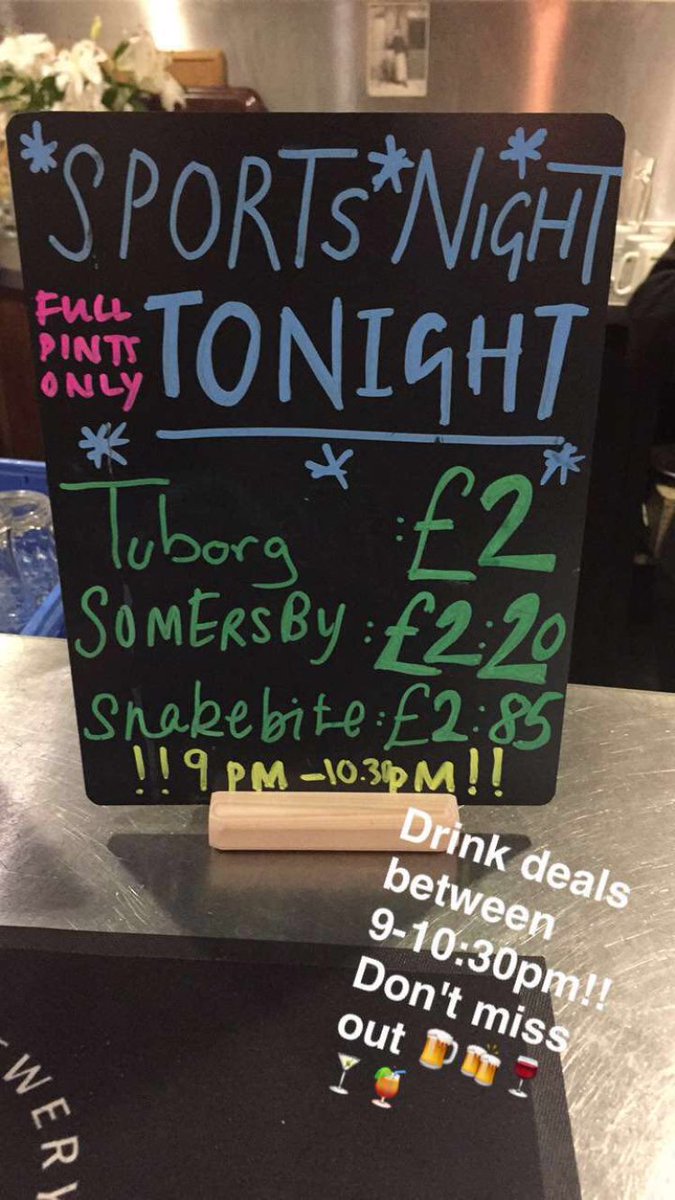 *SPORTS*NIGHT*
FULL
PINTS
ONLY
TONIGHT
Tuborg :£2
SOMERSBY :£2:20
Snakebite :£2:85
!!9 PM -10.30PM!!
Drink deals
between
9-10:30pm!!
Don't miss
out 🍺🍻🍷
🍸🍹
EWERY